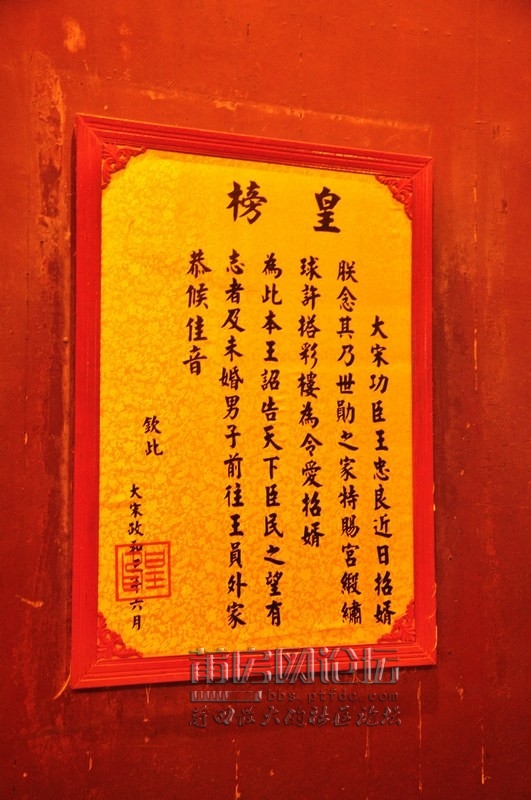 皇榜
大宋功臣王忠良近日招婿
朕念其乃世勛之家特賜宮緞繡
球許搭彩樓為令愛招婿
為此本王詔告天下臣民之望有
志者及未婚男子前往王員外家
恭候佳音
欽此
大宋政和二年六月
bbs.ptfdc.com